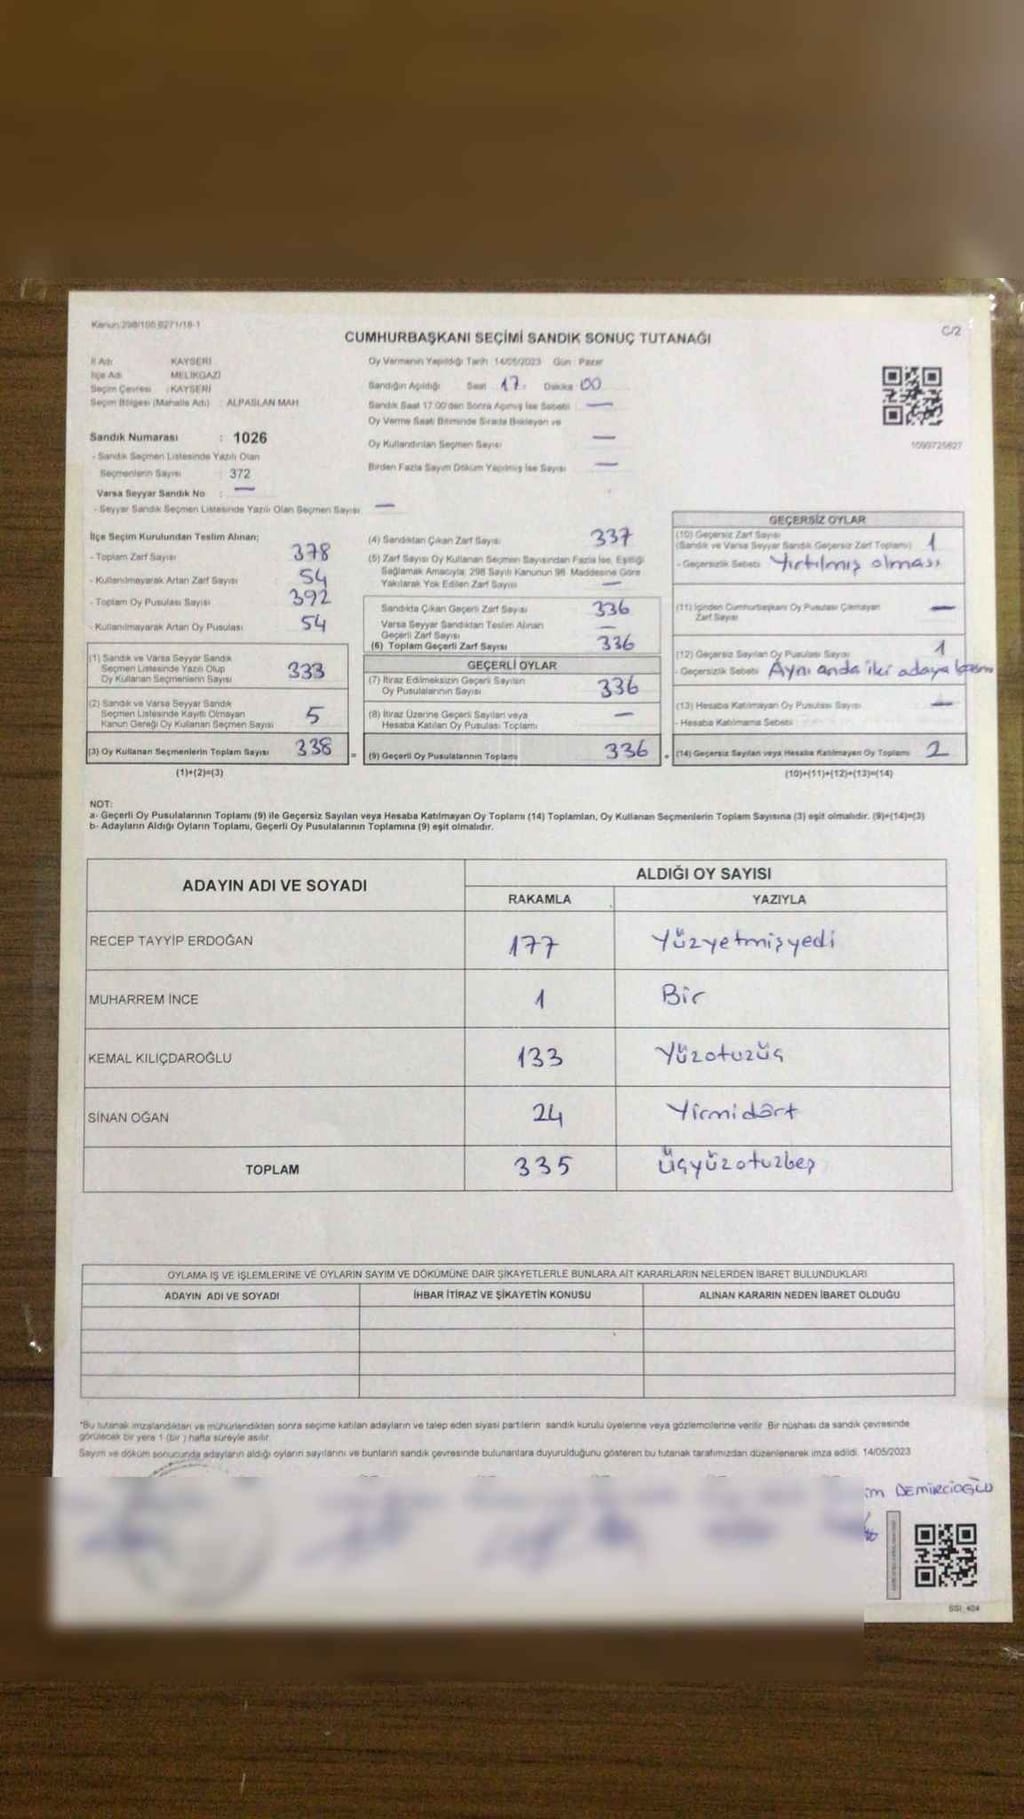 Kanun:298/105 6271/18-1
C/2
CUMHURBAŞKANI SEÇİMİ SANDIK SONUÇ TUTANAĞI
İl Adı : KAYSERİ
İlçe Adı : MELİKGAZİ
Seçim Çevresi : KAYSERİ
Seçim Bölgesi (Mahalle Adı) : ALPASLAN MAH
Sandık Numarası : 1026
- Sandık Seçmen Listesinde Yazılı Olan
Seçmenlerin Sayısı : 372
Varsa Seyyar Sandık No : —
- Seyyar Sandık Seçmen Listesinde Yazılı Olan Seçmen Sayısı —
Oy Vermenin Yapıldığı Tarih 14/05/2023 Gün Pazar
Sandığın Açıldığı Saat 17: Dakika 00
Sandık Saat 17.00'den Sonra Açılmış İse Sebebi —
Oy Verme Saati Bitiminde Sırada Bekleyen ve
Oy Kullandırılan Seçmen Sayısı —
Birden Fazla Sayım Döküm Yapılmış İse Sayısı —
1099725627
İlçe Seçim Kurulundan Teslim Alınan;
- Toplam Zarf Sayısı 378
- Kullanılmayarak Artan Zarf Sayısı 54
- Toplam Oy Pusulası Sayısı 392
- Kullanılmayarak Artan Oy Pusulası 54
(1) Sandık ve Varsa Seyyar Sandık
Seçmen Listesinde Yazılı Olup
Oy Kullanan Seçmenlerin Sayısı 333
(2) Sandık ve Varsa Seyyar Sandık
Seçmen Listesinde Kayıtlı Olmayan
Kanun Gereği Oy Kullanan Seçmen Sayısı 5
(3) Oy Kullanan Seçmenlerin Toplam Sayısı 338
(1)+(2)=(3)
(4) Sandıktan Çıkan Zarf Sayısı 337
(5) Zarf Sayısı Oy Kullanan Seçmen Sayısından Fazla İse, Eşitliği
Sağlamak Amacıyla; 298 Sayılı Kanunun 98. Maddesine Göre
Yakılarak Yok Edilen Zarf Sayısı —
Sandıkta Çıkan Geçerli Zarf Sayısı 336
Varsa Seyyar Sandıktan Teslim Alınan
Geçerli Zarf Sayısı —
(6) Toplam Geçerli Zarf Sayısı 336
GEÇERLİ OYLAR
(7) İtiraz Edilmeksizin Geçerli Sayılan
Oy Pusulalarının Sayısı 336
(8) İtiraz Üzerine Geçerli Sayılan veya
Hesaba Katılan Oy Pusulası Toplamı —
= (9) Geçerli Oy Pusulalarının Toplamı 336
GEÇERSİZ OYLAR
(10) Geçersiz Zarf Sayısı
(Sandık ve Varsa Seyyar Sandık Geçersiz Zarf Toplamı) 1
- Geçersizlik Sebebi Yırtılmış olması
(11) İçinden Cumhurbaşkanı Oy Pusulası Çıkmayan
Zarf Sayısı —
(12) Geçersiz Sayılan Oy Pusulası Sayısı 1
- Geçersizlik Sebebi Aynı anda iki adaya
(13) Hesaba Katılmayan Oy Pusulası Sayısı —
- Hesaba Katılmama Sebebi
+ (14) Geçersiz Sayılan veya Hesaba Katılmayan Oy Toplamı 2
(10)+(11)+(12)+(13)=(14)
NOT:
a- Geçerli Oy Pusulalarının Toplamı (9) ile Geçersiz Sayılan veya Hesaba Katılmayan Oy Toplamı (14) Toplamları, Oy Kullanan Seçmenlerin Toplam Sayısına (3) eşit olmalıdır. (9)+(14)=(3)
b- Adayların Aldığı Oyların Toplamı, Geçerli Oy Pusulalarının Toplamına (9) eşit olmalıdır.
ADAYIN ADI VE SOYADI
ALDIĞI OY SAYISI
RAKAMLA YAZIYLA
RECEP TAYYİP ERDOĞAN 177 Yüzyetmişyedi
MUHARREM İNCE 1 Bir
KEMAL KILIÇDAROĞLU 133 Yüzotuzüç
SİNAN OĞAN 24 Yirmidört
TOPLAM 335 Üçyüzotuzbeş
OYLAMA İŞ VE İŞLEMLERİNE VE OYLARIN SAYIM VE DÖKÜMÜNE DAİR ŞİKAYETLERLE BUNLARA AİT KARARLARIN NELERDEN İBARET BULUNDUKLARI
ADAYIN ADI VE SOYADI İHBAR İTİRAZ VE ŞİKAYETİN KONUSU ALINAN KARARIN NEDEN İBARET OLDUĞU
*Bu tutanak imzalandıktan ve mühürlendikten sonra seçime katılan adayların ve talep eden siyasi partilerin sandık kurulu üyelerine veya gözlemcilerine verilir. Bir nüshası da sandık çevresinde
görülecek bir yere 1 (bir) hafta süreyle asılır.
Sayım ve döküm sonucunda adayların aldığı oyların sayılarını ve bunların sandık çevresinde bulunanlara duyurulduğunu gösteren bu tutanak tarafımızdan düzenlenerek imza edildi. 14/05/2023
im DEMİRCİOĞLU
SSI_404